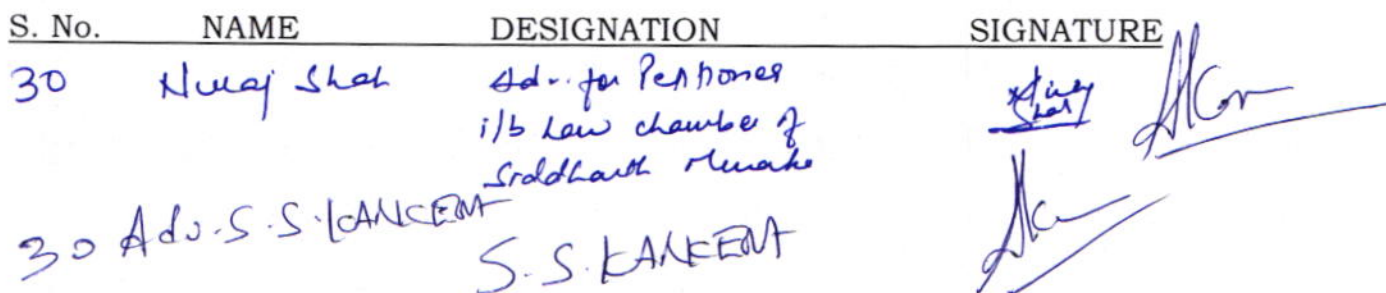 S. No. NAME DESIGNATION SIGNATURE
30 Niraj Shah Adv. for Petitioner
i/b Law chamber of
Siddharth
30 Adv. S. S. KANKEM S. S. KANKEM